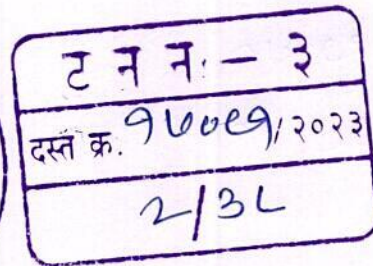 ट न न. - ३
दस्त क्र. १७०९१/२०२३
२/३८